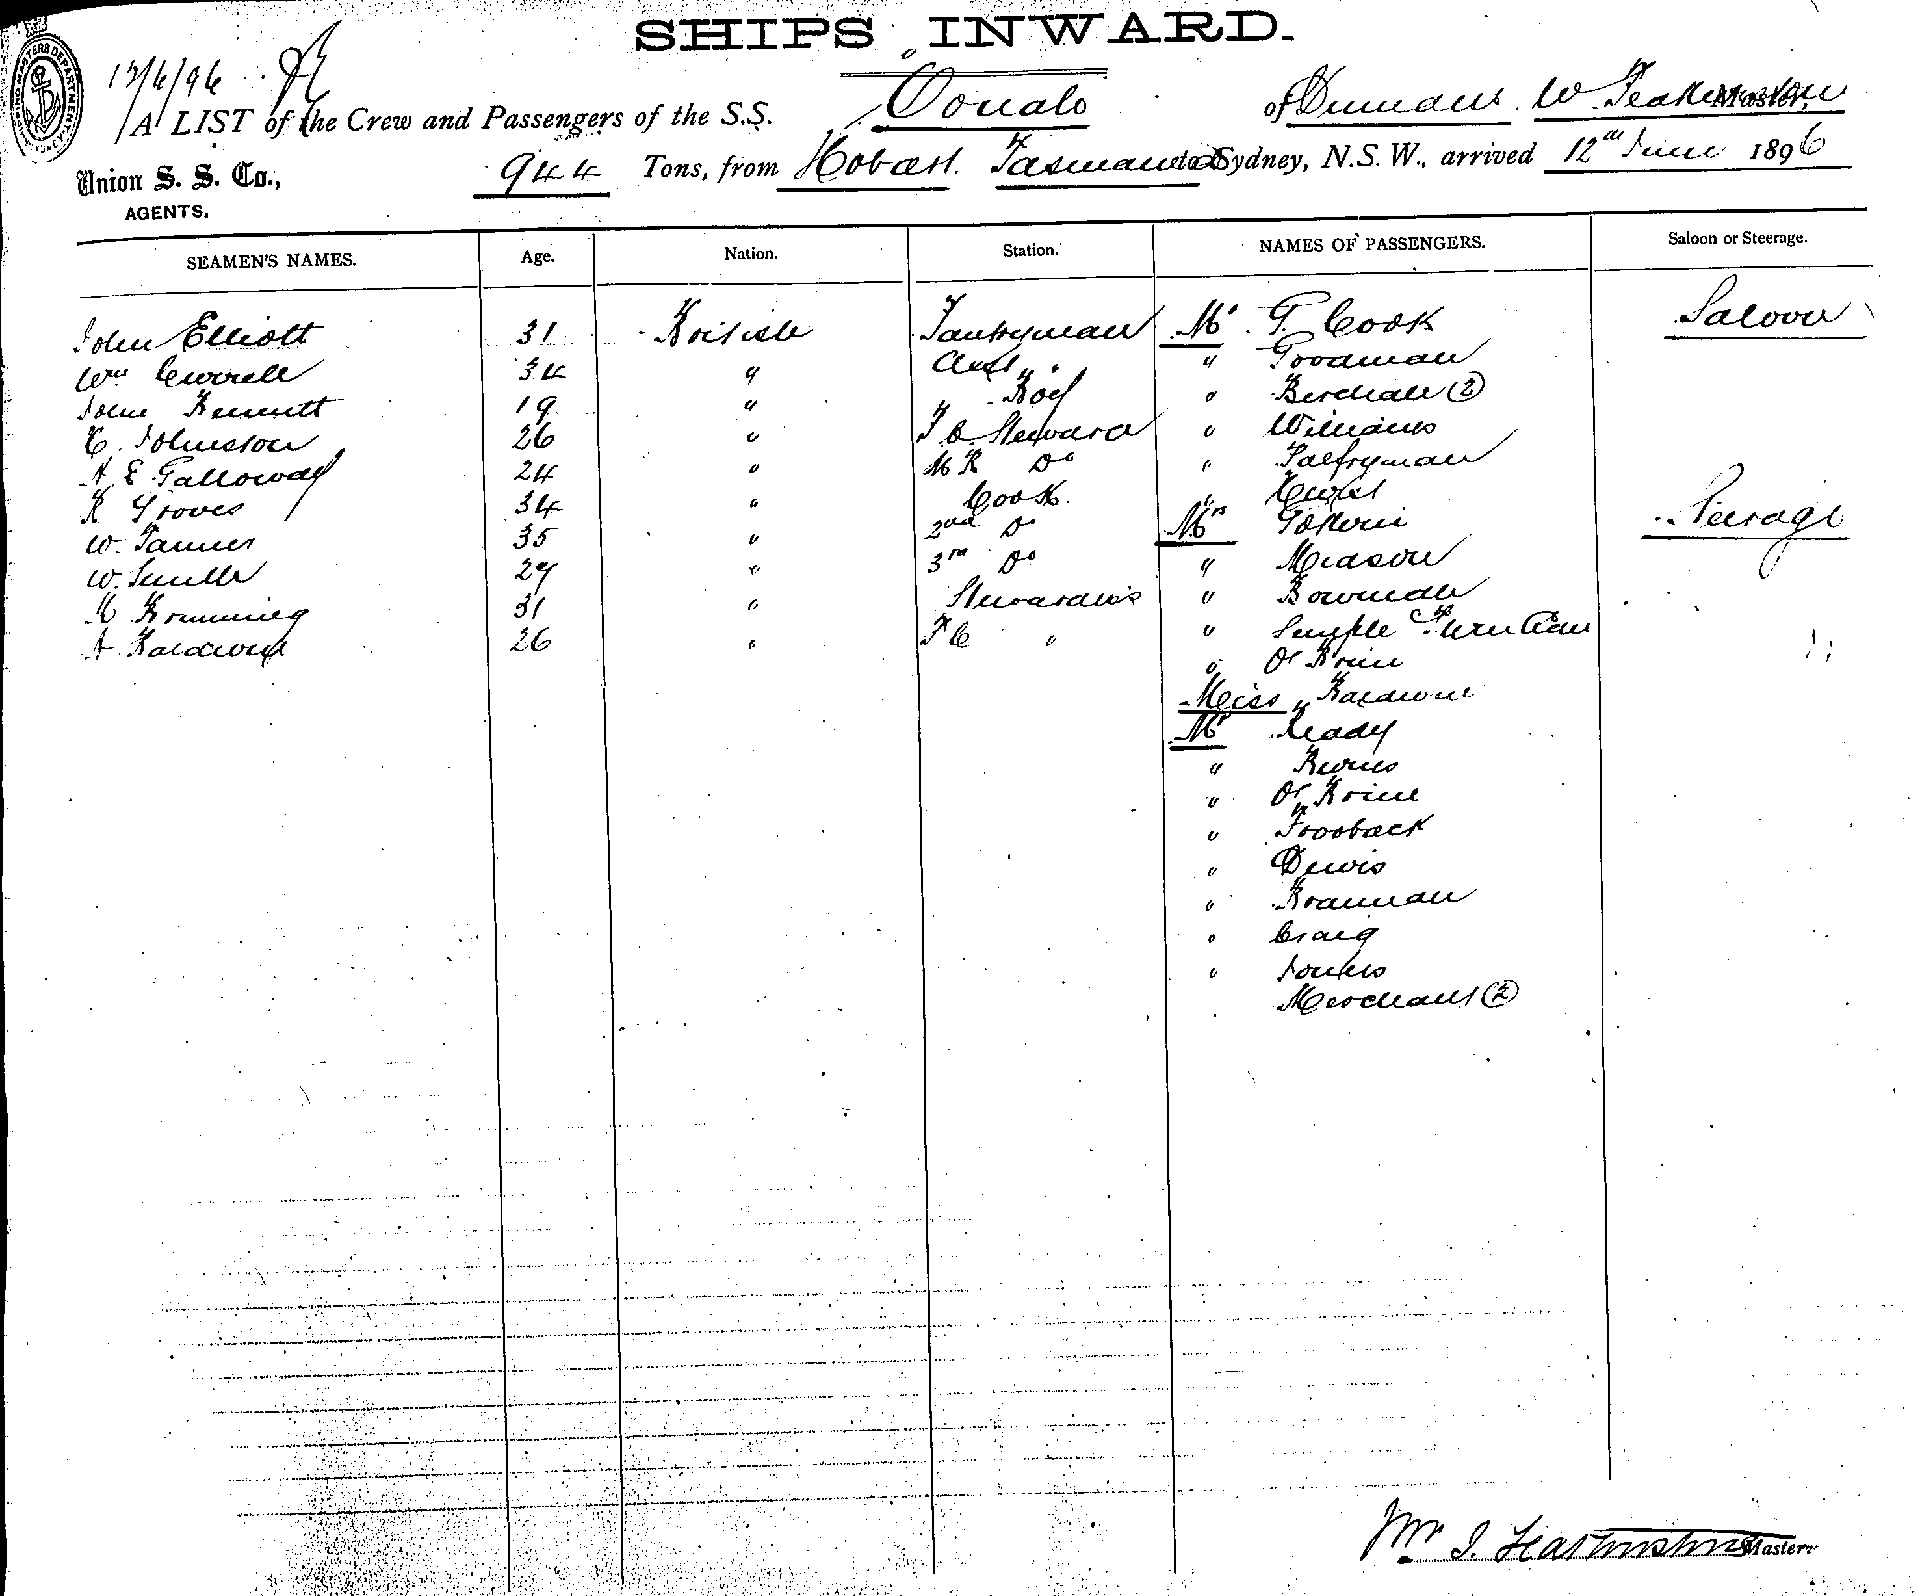 SHIPS INWARD.
12/6/96
A LIST of the Crew and Passengers of the S.S. Oonah of W. Master,
Union S. S. Co., AGENTS. 944 Tons, from Hobart Tasmania to Sydney, N.S.W., arrived 12th June 1896
SEAMEN'S NAMES. Age. Nation. Station. NAMES OF PASSENGERS. Saloon or Steerage.
John Elliott 31 British Pantryman Mr. G. Cook Saloon
Wm Currell 34 " Asst " " Goodman
John Bennett 19 " " Boy " Birchall (2)
C. Johnston 26 " F C Steward " Williams
A E Galloway 24 " M R Do " Palfryman
R Groves 34 " Cook "
W. Tanner 35 " 2nd Do Mrs Steerage
W. Smith 29 " 3rd Do " Meason
31 " Stewardess " Bowman
A Baldwin 26 " F C " " Semple
" O'Brien
Miss Baldwin
Mr Ready
" Burns
" O'Brien
"
" Dewis
" Brannan
" Craig
" Jones
Merchant (2)
Master